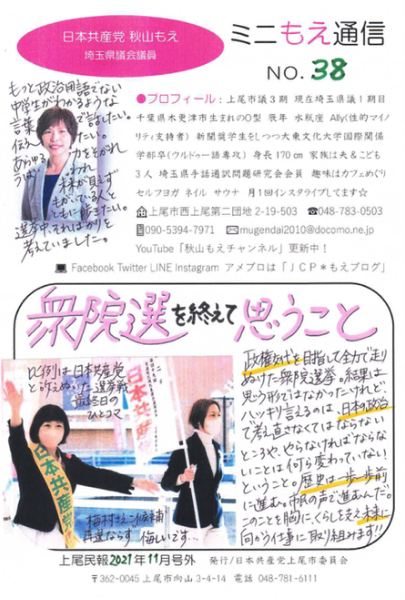 日本共産党 秋山もえ
埼玉県議会議員
ミニもえ通信
NO. 38
もっと政治用語でない
中学生がわかるような
言葉で話したい。
伝えたい。
力をそがれ
うばわれ
未来が見えず
もがいている人と
ともに歩きたい。
選挙中そればかりを
考えていました。
●プロフィール：上尾市議３期 現在埼玉県議１期目
千葉県木更津市生まれのO型 辰年 水瓶座 Ally(性的マイノ
リティ支持者) 新聞奨学生をしつつ大東文化大学国際関係
学部卒(ウルドゥー語専攻) 身長170㎝ 家族は夫＆こども
３人 埼玉県手話通訳問題研究会会員 趣味はカフェめぐり
セルフヨガ ネイル サウナ 月１回インスタライブしてます☆
上尾市西上尾第二団地 2-19-503 ☎048-783-0503
090-5394-7971 mugendai2010@docomo.ne.jp
YouTube「秋山もえチャンネル」更新中！
Facebook Twitter LINE Instagram アメブロは「ＪＣＰ＊もえブログ」
衆院選を終えて思うこと
比例は日本共産党
と訴えぬいた選挙戦
最終日の
ひとコマ
日本共産党
日本共産党
梅村さえこ候補
再選ならず 悔しいです…
政権交代を目指して全力で走り
ぬけた衆院選挙。結果は
思う形ではなかったけれど、
ハッキリ言えるのは、日本の政治
で考え直さなくてはならない
ところや、やらなければならな
いことは何ら変わっていない
ということ。歴史は一歩一歩前
に進む。市民の声で進むんだ。
このことを胸に、くらしを支え未来に
向かう仕事に取り組みます!!
上尾民報2021年11月号外 発行/日本共産党上尾市委員会
〒362-0045 上尾市向山 3-4-14 電話 048-781-6111